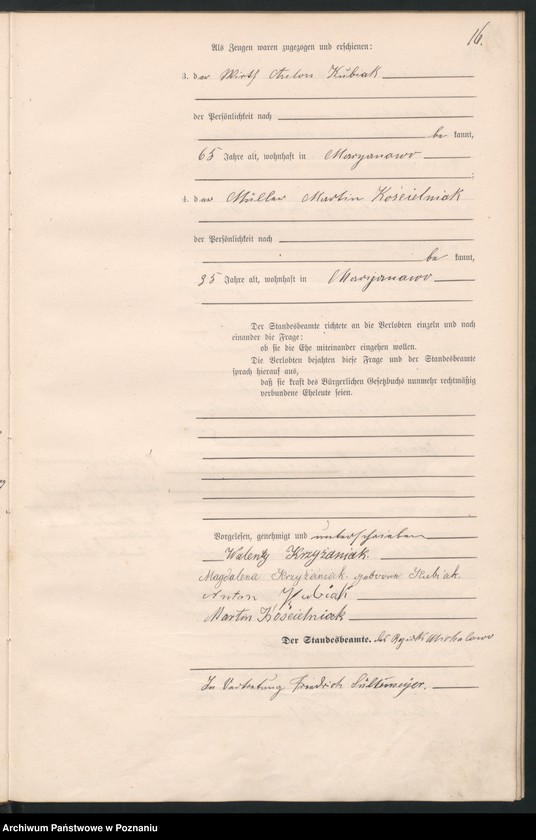 16.
Als Zeugen waren zugezogen und erschienen:
3. der Wirth Anton Kubiak
der Persönlichkeit nach
be kannt,
65 Jahre alt, wohnhaft in Maryanowo
;
4. der Müller Martin Kościelniak
der Persönlichkeit nach
be kannt,
35 Jahre alt, wohnhaft in Maryanowo
Der Standesbeamte richtete an die Verlobten einzeln und nach
einander die Frage:
ob sie die Ehe miteinander eingehen wollen.
Die Verlobten bejahten diese Frage und der Standesbeamte
sprach hierauf aus,
daß sie kraft des Bürgerlichen Gesetzbuchs nunmehr rechtmäßig
verbundene Eheleute seien.
Vorgelesen, genehmigt und unterschrieben
Walenty Krzyżaniak.
Magdalena Krzyżaniak geborene Kubiak.
Anton Kubiak
Martin Kościelniak
Der Standesbeamte.
In Vertretung Friedrich
Archiwum Państwowe w Poznaniu